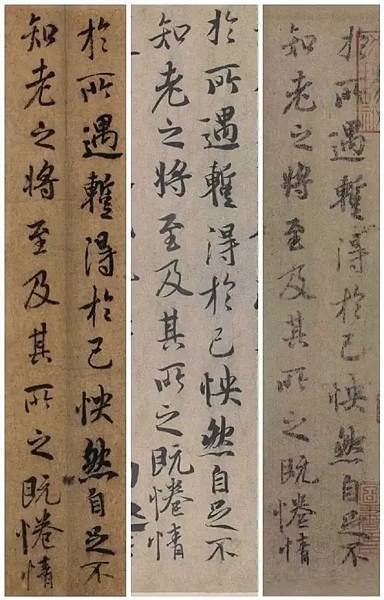 於所遇暫得於己怏然自足不
知老之將至及其所之既惓情
於所遇暫得於己怏然自足不
知老之將至及其所之既惓情
於所遇暫得於己怏然自足不
知老之將至及其所之既惓情